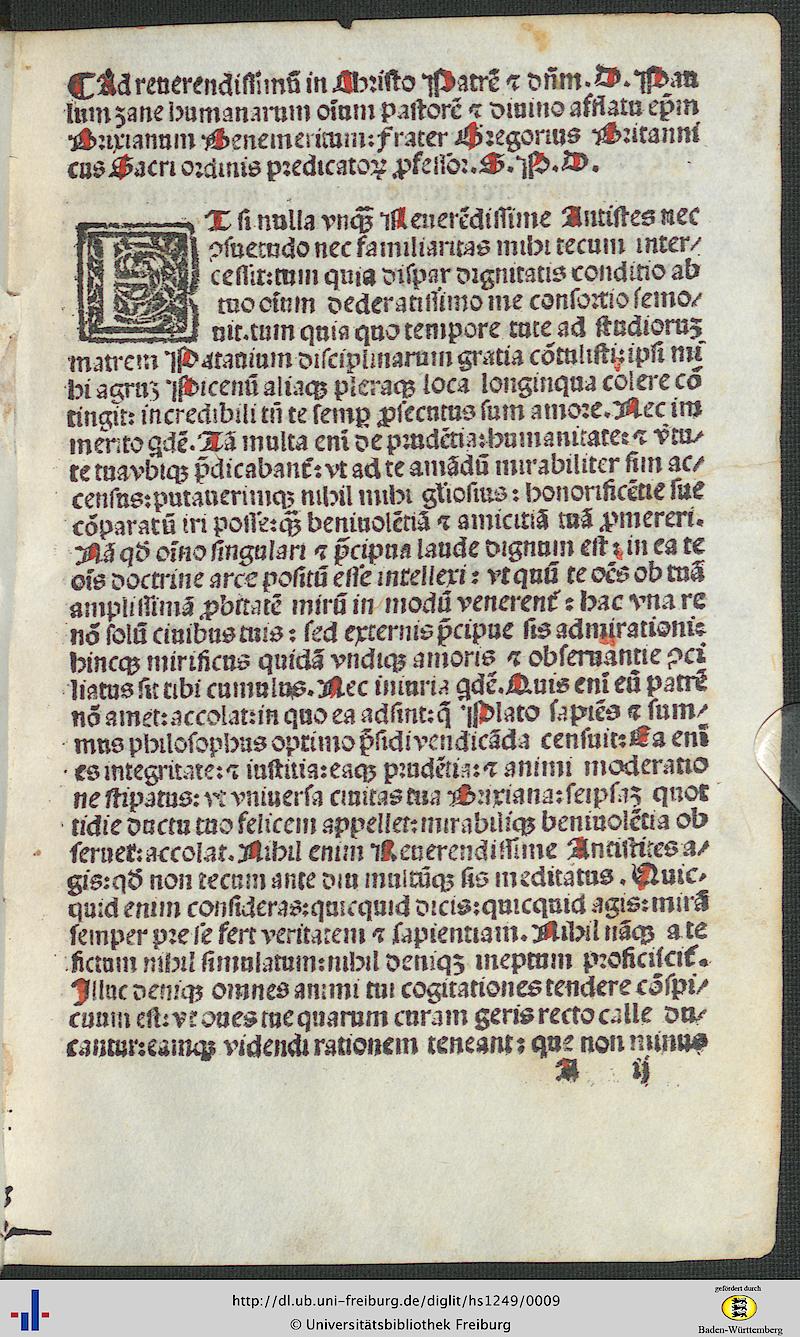 ¶Ad reuerendissimũ in Christo Patrẽ ⁊ dñm. D. Pau
lum zane humanarum oĩum pastorẽ ⁊ diuino afflatu ep̃m
Brixianum Benemeritum: frater Gregorius Britanni
cus Sacri ordinis predicatoꝝ ꝓfessor. S. P. D.
ET si nulla vnqꝫ̃ Reuerẽdissime Antistes nec
ꝯsuetudo nec familiaritas mihi tecum inter/
cessit: tum quia dispar dignitatis conditio ab
tuo oĩum dederatissimo me consortio semo/
uit. tum quia quo tempore tute ad studioruꝫ
matrem Patauium disciplinarum gratia cõtulisti: ipsi mi
hi agruꝫ Picenũ aliaqꝫ pleraqꝫ loca longinqua colere cõ
tingit: incredibili tñ te semꝑ ꝓsecutus sum amore. Nec im
merito qdẽ. Tã multa enĩ de prudẽtia: humanitate: ⁊ v̾tu/
te tua vbiqꝫ p̃dicabant̃: vt ad te amãdũ mirabiliter sim ac/
census: putauerimqꝫ nihil mihi gl̃iosius: honorificẽtie sue
cõparatũ iri posse: qꝫ̃ beniuolẽtiã ⁊ amicitiã tuã ꝓmereri.
Nã qđ oĩno singulari ⁊ p̃cipua laude dignum est: in ea te
oĩs doctrine arce positũ esse intellexi: vt quũ te oẽs ob tuã
amplissimã ꝓbitatẽ mirũ in modũ venerent̃: hac vna re
nõ solũ ciuibus tuis: sed externis p̃cipue sis admirationi:
hincqꝫ mirificus quidã vndiqꝫ amoris ⁊ obseruantie ꝯci
liatus sit tibi cumulus. Nec iniuria qdẽ. Quis enĩ eũ patrẽ
nõ amet: accolat: in quo ea adsint: q̃ Plato sapiẽs ⁊ sum/
mus philosophus optimo p̃sidi vendicãda censuit: Ea enĩ
es integritate: ⁊ iustitia: eaqꝫ prudẽtia: ⁊ animi moderatio
ne stipatus: vt vniuersa ciuitas tua Brixiana: seipsaꝫ quot
tidie ductu tuo felicem appellet: mirabiliqꝫ beniuolẽtia ob
seruet: accolat. Nihil enim Reuerendissime Antistites a/
gis: qđ non tecum ante diu multũqꝫ sis meditatus. Quic/
quid enim consideras: quicquid dicis: quicquid agis: mirã
semper pre se fert veritatem ⁊ sapientiam. Nihil nãqꝫ a te
fictum nihil simulatum: nihil deniqꝫ ineptum proficiscit̃.
Illuc deniqꝫ omnes animi tui cogitationes tendere cõspi/
cuum est: vt oues tue quarum curam geris recto calle du/
cantur: eamqꝫ videndi rationem teneant: que non minus
A ij
http://dl.ub.uni-freiburg.de/diglit/hs1249/0009
© Universitätsbibliothek Freiburg
gefördert durch
Baden-Württemberg